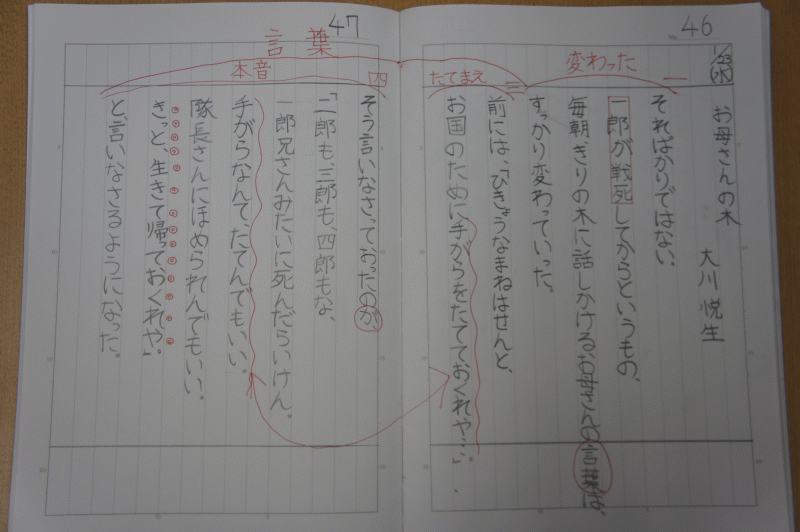 46
1/23
㈬
お母さんの木
大川悦生
変わった
一
そればかりではない。
一郎が戦死してからというもの、
毎朝、ぎりの木に話しかけるお母さんの言葉は、
すっかり変わっていった。
たてまえ
三
前には、「ひきょうなまねはせんと、
お国のために手がらをたてておくれや…」。
47
言葉
本音
四
そう言いなさっておったのが、
「二郎も、三郎も、四郎もな、
一郎兄さんみたいに死んだらいけん。
手がらなんて、たてんでもいい。
隊長さんにほめられんでもいい。
きっと、生きて帰っておくれや。」
と、言いなさるようになった。